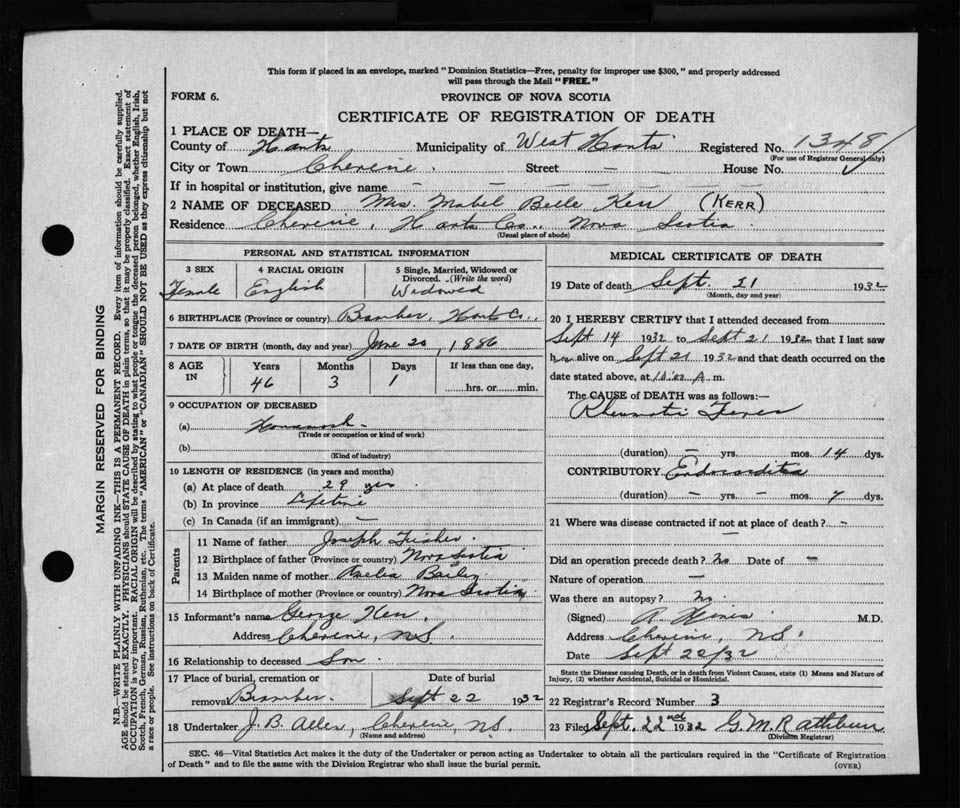 This form if placed in an envelope, marked "Dominion Statistics—Free, penalty for improper use $300," and properly addressed
will pass through the Mail "FREE."
FORM 6.
PROVINCE OF NOVA SCOTIA
CERTIFICATE OF REGISTRATION OF DEATH
1 PLACE OF DEATH—
County of Hants Municipality of West Hants Registered No. 1348
(For use of Registrar General only)
City or Town Cheverie. Street — — House No.
If in hospital or institution, give name — — — — — — —
2 NAME OF DECEASED Mrs. Mabel Belle Kerr (KERR)
Residence Cheverie, Hants Co., Nova Scotia.
(Usual place of abode)
PERSONAL AND STATISTICAL INFORMATION
3 SEX 4 RACIAL ORIGIN 5 Single, Married, Widowed or
Divorced. (Write the word)
Female English Widowed
6 BIRTHPLACE (Province or country) Bramber, Hants Co.,
7 DATE OF BIRTH (month, day and year) June 20, 1886
8 AGE IN Years Months Days If less than one day,
46 3 1 hrs. or min.
9 OCCUPATION OF DECEASED
(a) Housework.
(Trade or occupation or kind of work)
(b)
(Kind of industry)
10 LENGTH OF RESIDENCE (in years and months)
(a) At place of death 29 yrs
(b) In province Lifetime
(c) In Canada (if an immigrant) —
Parents
11 Name of father Joseph Fisher
12 Birthplace of father (Province or country) Nova Scotia
13 Maiden name of mother Bailey
14 Birthplace of mother (Province or country) Nova Scotia
15 Informant's name George Kerr
Address Cheverie, N.S.
16 Relationship to deceased Son.
17 Place of burial, cremation or Date of burial
removal Bramber. Sept 22 1932
18 Undertaker J. B. Allen, Cheverie, N.S.
(Name and address)
MEDICAL CERTIFICATE OF DEATH
19 Date of death Sept. 21 1932
(Month, day and year)
20 I HEREBY CERTIFY that I attended deceased from
Sept 14 1932 to Sept 21 1932 that I last saw
her alive on Sept 21 1932 and that death occurred on the
date stated above, at A m.
The CAUSE of DEATH was as follows:—
Rheumatic Fever
(duration) — yrs. mos. 14 dys.
CONTRIBUTORY Endocarditis
(duration) — yrs. — mos. 7 dys.
21 Where was disease contracted if not at place of death? —
Did an operation precede death? No Date of —
Nature of operation —
Was there an autopsy? No
(Signed) R. M.D.
Address Cheverie, N.S.
Date Sept 22/32
State the Disease causing Death, or in death from Violent Causes, state (1) Means and Nature of
Injury, (2) whether Accidental, Suicidal or Homicidal.
22 Registrar's Record Number 3
23 Filed Sept. 22nd 1932 G. M. Rathbun
(Division Registrar)
SEC. 46—Vital Statistics Act makes it the duty of the Undertaker or person acting as Undertaker to obtain all the particulars required in the "Certificate of Registration
of Death" and to file the same with the Division Registrar who shall issue the burial permit.
(OVER)
MARGIN RESERVED FOR BINDING
N.B.—WRITE PLAINLY WITH UNFADING INK—THIS IS A PERMANENT RECORD. Every item of information should be carefully supplied.
AGE should be stated EXACTLY. PHYSICIANS should STATE CAUSE OF DEATH in plain terms, so that it may be properly classified. Exact statement of
OCCUPATION is very important. RACIAL ORIGIN will be described by stating to what people or tongue the deceased person belonged, whether English, Irish,
Scotch, French, German, Russian, Ruthenian, etc. The terms "AMERICAN" or "CANADIAN" SHOULD NOT BE USED as they express citizenship but not
a race or people. See instructions on back of Certificate.